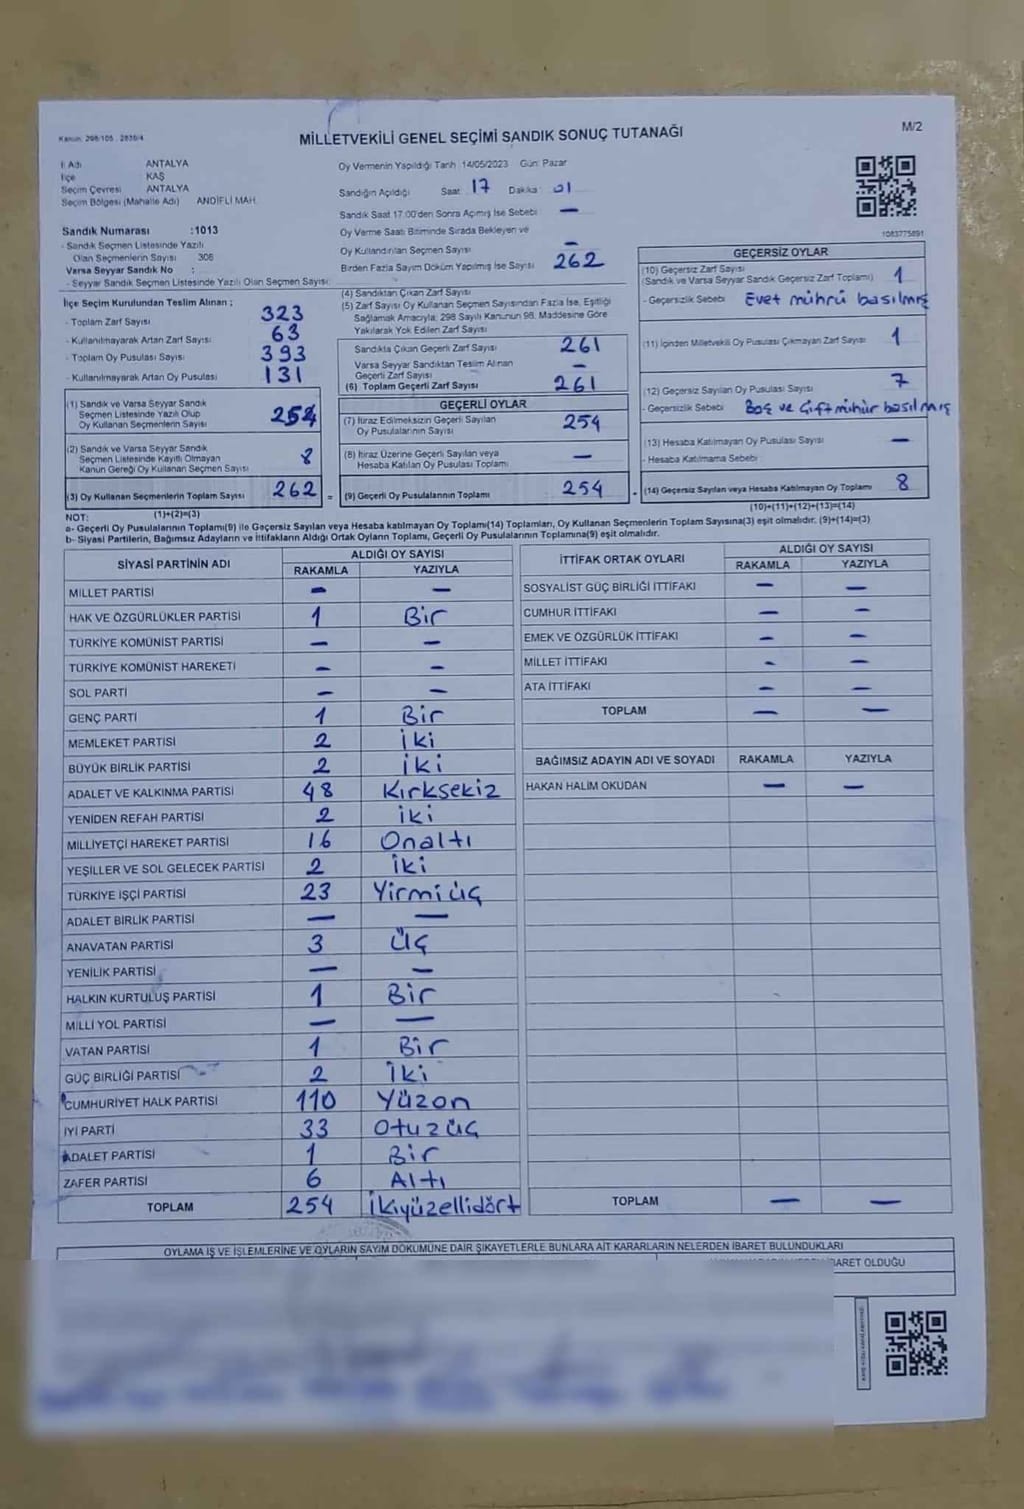 Kanun: 298/105 - 2839/4
MİLLETVEKİLİ GENEL SEÇİMİ SANDIK SONUÇ TUTANAĞI
M/2
İl Adı ANTALYA
İlçe KAŞ
Seçim Çevresi ANTALYA
Seçim Bölgesi (Mahalle Adı) ANDİFLİ MAH.
Oy Vermenin Yapıldığı Tarih 14/05/2023 Gün: Pazar
Sandığın Açıldığı Saat 17 Dakika 01
Sandık Saat 17:00'den Sonra Açılmış İse Sebebi —
Oy Verme Saati Bitiminde Sırada Bekleyen ve
Oy Kullandırılan Seçmen Sayısı —
Birden Fazla Sayım Döküm Yapılmış İse Sayısı 262
1083775891
Sandık Numarası :1013
- Sandık Seçmen Listesinde Yazılı
Olan Seçmenlerin Sayısı 306
Varsa Seyyar Sandık No :
- Seyyar Sandık Seçmen Listesinde Yazılı Olan Seçmen Sayısı:
İlçe Seçim Kurulundan Teslim Alınan ;
- Toplam Zarf Sayısı 323
- Kullanılmayarak Artan Zarf Sayısı 63
- Toplam Oy Pusulası Sayısı 393
- Kullanılmayarak Artan Oy Pusulası 131
(1) Sandık ve Varsa Seyyar Sandık
Seçmen Listesinde Yazılı Olup
Oy Kullanan Seçmenlerin Sayısı 254
(2) Sandık ve Varsa Seyyar Sandık
Seçmen Listesinde Kayıtlı Olmayan
Kanun Gereği Oy Kullanan Seçmen Sayısı 8
(3) Oy Kullanan Seçmenlerin Toplam Sayısı 262 =
(1)+(2)=(3)
(4) Sandıktan Çıkan Zarf Sayısı
(5) Zarf Sayısı Oy Kullanan Seçmen Sayısından Fazla İse, Eşitliği
Sağlamak Amacıyla; 298 Sayılı Kanunun 98. Maddesine Göre
Yakılarak Yok Edilen Zarf Sayısı
Sandıkta Çıkan Geçerli Zarf Sayısı 261
Varsa Seyyar Sandıktan Teslim Alınan
Geçerli Zarf Sayısı —
(6) Toplam Geçerli Zarf Sayısı 261
GEÇERLİ OYLAR
(7) İtiraz Edilmeksizin Geçerli Sayılan
Oy Pusulalarının Sayısı 254
(8) İtiraz Üzerine Geçerli Sayılan veya
Hesaba Katılan Oy Pusulası Toplamı —
(9) Geçerli Oy Pusulalarının Toplamı 254
GEÇERSİZ OYLAR
(10) Geçersiz Zarf Sayısı
(Sandık ve Varsa Seyyar Sandık Geçersiz Zarf Toplamı) 1
- Geçersizlik Sebebi Evet mührü basılmış
(11) İçinden Milletvekili Oy Pusulası Çıkmayan Zarf Sayısı 1
(12) Geçersiz Sayılan Oy Pusulası Sayısı 7
- Geçersizlik Sebebi Boş ve Çift mühür basılmış
(13) Hesaba Katılmayan Oy Pusulası Sayısı —
- Hesaba Katılmama Sebebi
(14) Geçersiz Sayılan veya Hesaba Katılmayan Oy Toplamı 8
(10)+(11)+(12)+(13)=(14)
NOT:
a- Geçerli Oy Pusulalarının Toplamı(9) ile Geçersiz Sayılan veya Hesaba katılmayan Oy Toplamı(14) Toplamları, Oy Kullanan Seçmenlerin Toplam Sayısına(3) eşit olmalıdır. (9)+(14)=(3)
b- Siyasi Partilerin, Bağımsız Adayların ve İttifakların Aldığı Ortak Oyların Toplamı, Geçerli Oy Pusulalarının Toplamına(9) eşit olmalıdır.
SİYASİ PARTİNİN ADI ALDIĞI OY SAYISI
RAKAMLA YAZIYLA
MİLLET PARTİSİ — —
HAK VE ÖZGÜRLÜKLER PARTİSİ 1 Bir
TÜRKİYE KOMÜNİST PARTİSİ — —
TÜRKİYE KOMÜNİST HAREKETİ — —
SOL PARTİ — —
GENÇ PARTİ 1 Bir
MEMLEKET PARTİSİ 2 İki
BÜYÜK BİRLİK PARTİSİ 2 İki
ADALET VE KALKINMA PARTİSİ 48 Kırksekiz
YENİDEN REFAH PARTİSİ 2 İki
MİLLİYETÇİ HAREKET PARTİSİ 16 Onaltı
YEŞİLLER VE SOL GELECEK PARTİSİ 2 İki
TÜRKİYE İŞÇİ PARTİSİ 23 Yirmiüç
ADALET BİRLİK PARTİSİ — —
ANAVATAN PARTİSİ 3 Üç
YENİLİK PARTİSİ — —
HALKIN KURTULUŞ PARTİSİ 1 Bir
MİLLİ YOL PARTİSİ — —
VATAN PARTİSİ 1 Bir
GÜÇ BİRLİĞİ PARTİSİ 2 İki
CUMHURİYET HALK PARTİSİ 110 Yüzon
İYİ PARTİ 33 Otuzüç
ADALET PARTİSİ 1 Bir
ZAFER PARTİSİ 6 Altı
TOPLAM 254 İkiyüzellidört
İTTİFAK ORTAK OYLARI ALDIĞI OY SAYISI
RAKAMLA YAZIYLA
SOSYALİST GÜÇ BİRLİĞİ İTTİFAKI — —
CUMHUR İTTİFAKI — —
EMEK VE ÖZGÜRLÜK İTTİFAKI — —
MİLLET İTTİFAKI — —
ATA İTTİFAKI — —
TOPLAM — —
BAĞIMSIZ ADAYIN ADI VE SOYADI RAKAMLA YAZIYLA
HAKAN HALİM OKUDAN — —
TOPLAM — —
OYLAMA İŞ VE İŞLEMLERİNE VE OYLARIN SAYIM DÖKÜMÜNE DAİR ŞİKAYETLERLE BUNLARA AİT KARARLARIN NELERDEN İBARET BULUNDUKLARI
İBARET OLDUĞU